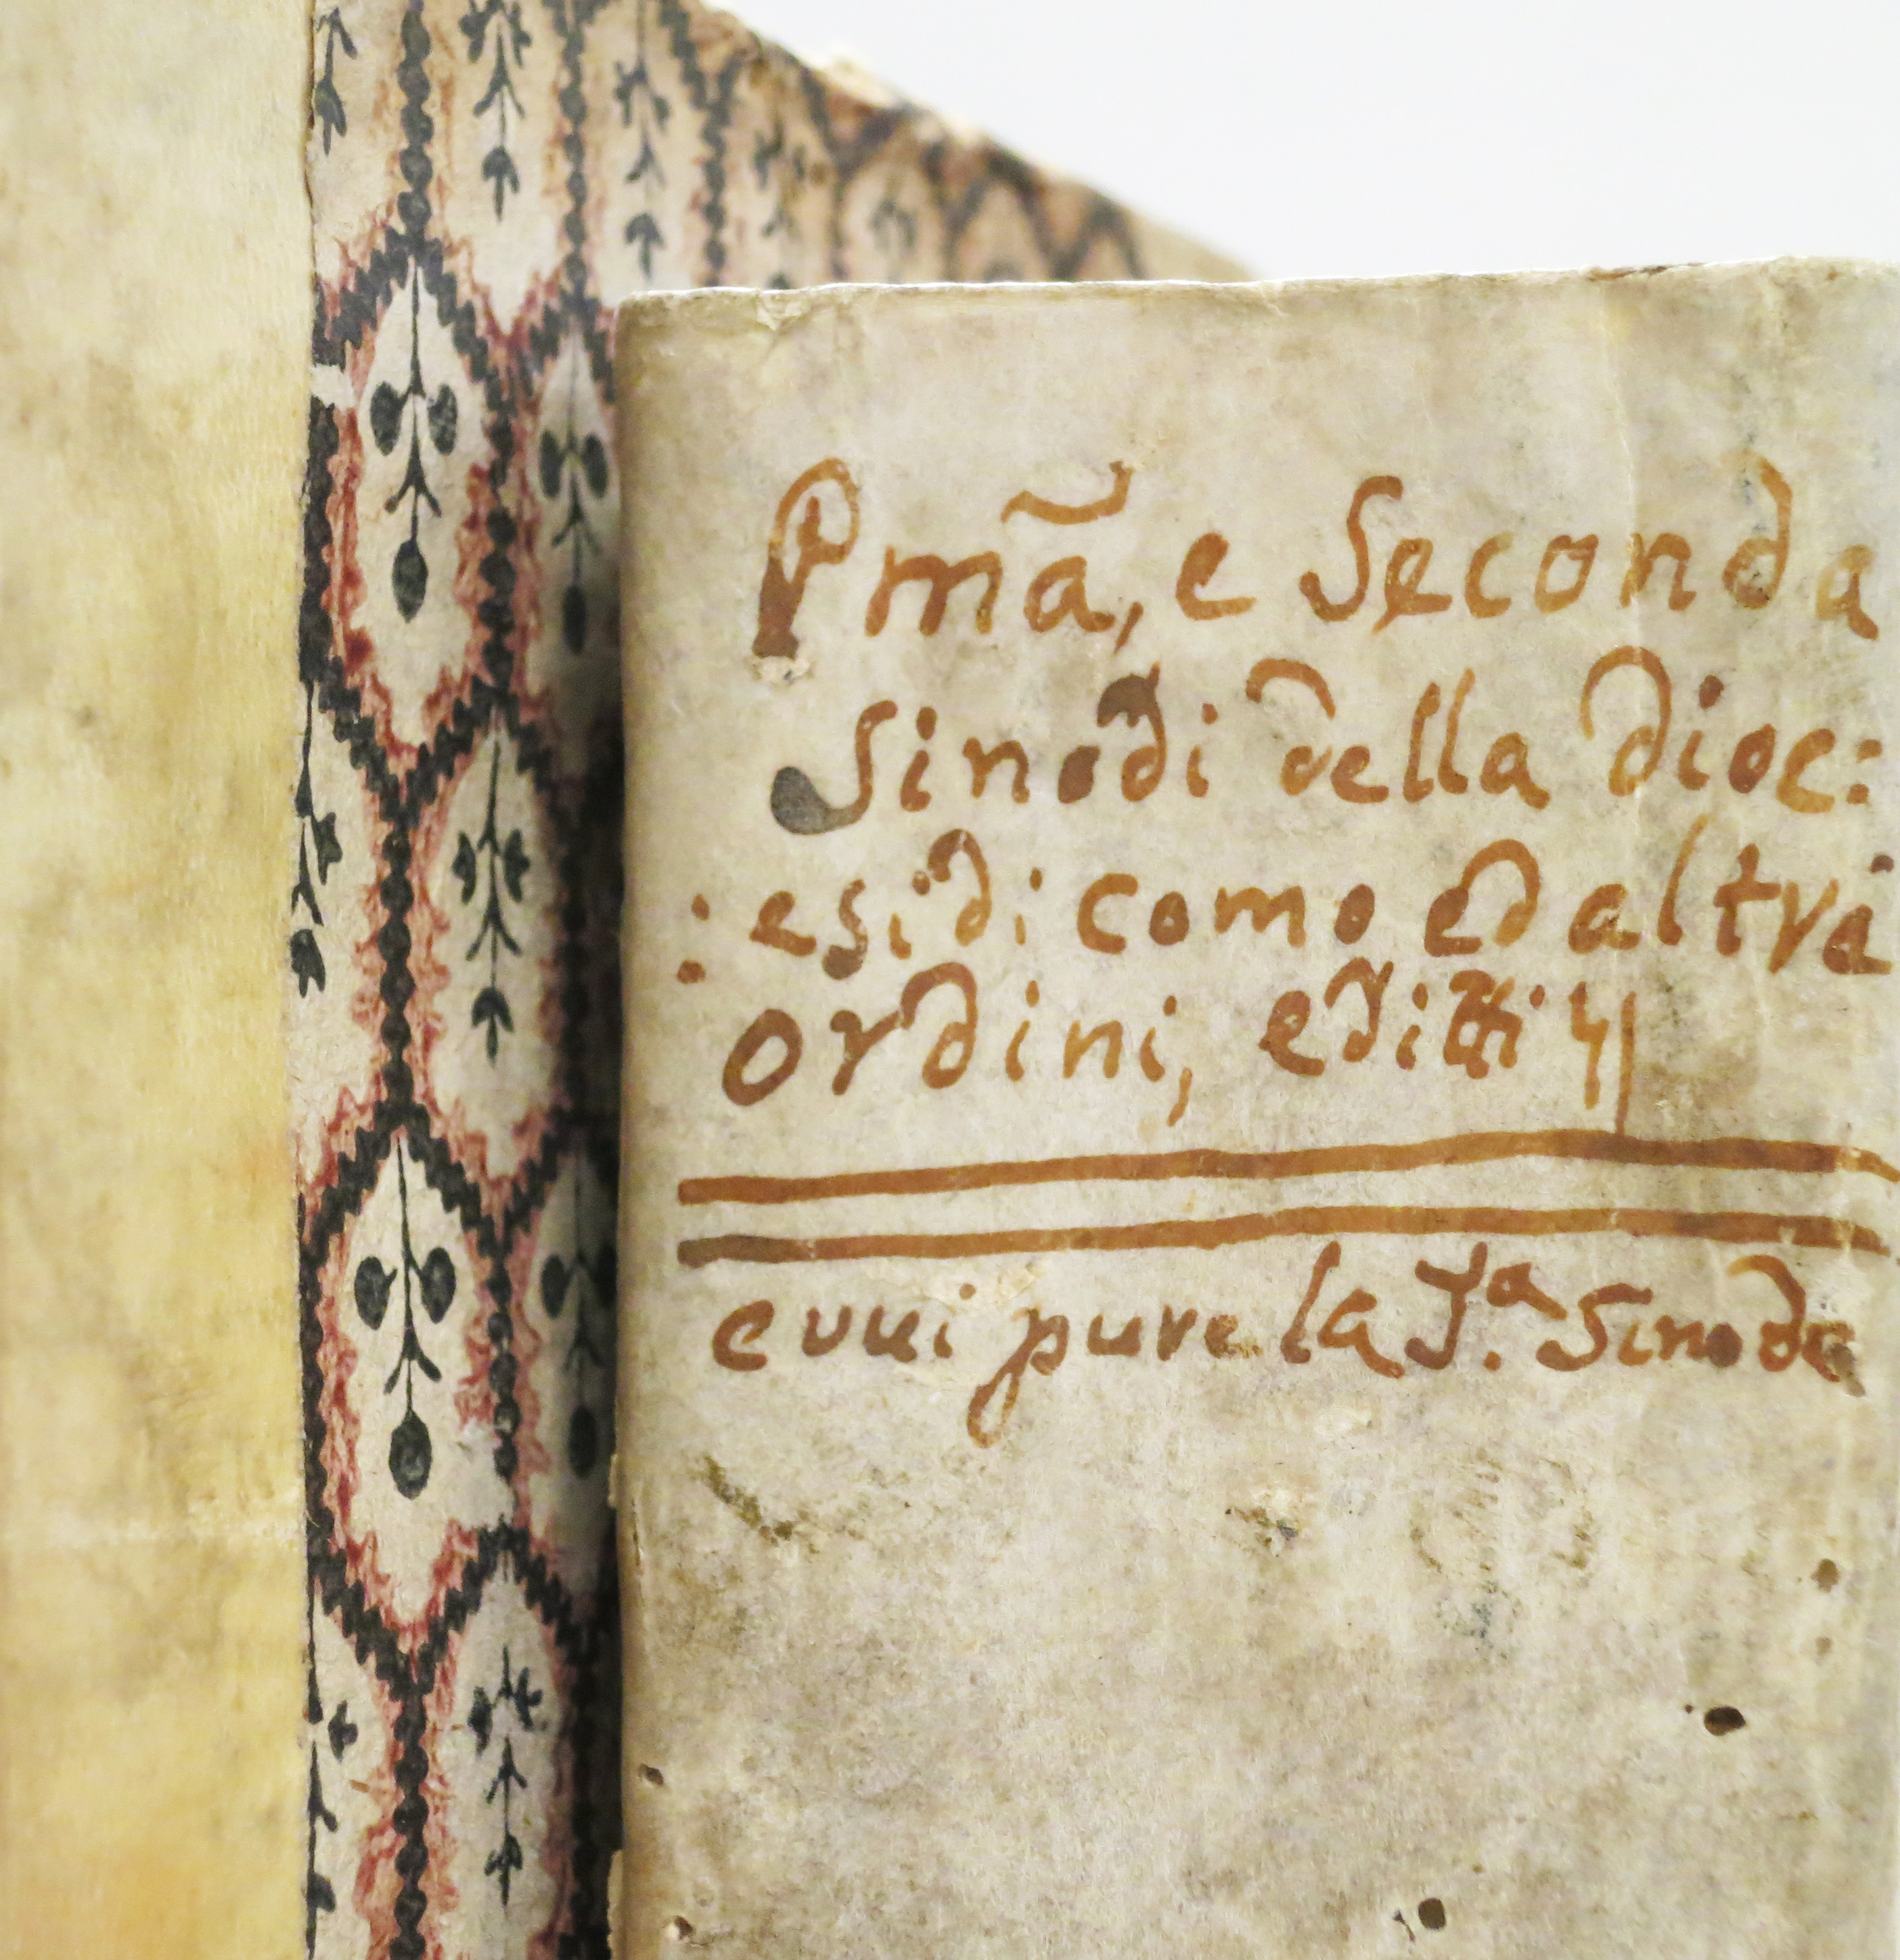 Pmã, e Seconda
Sinodi della dioc:
:esi di como ed altri
ordini, editti
e vui pure la Sinodo